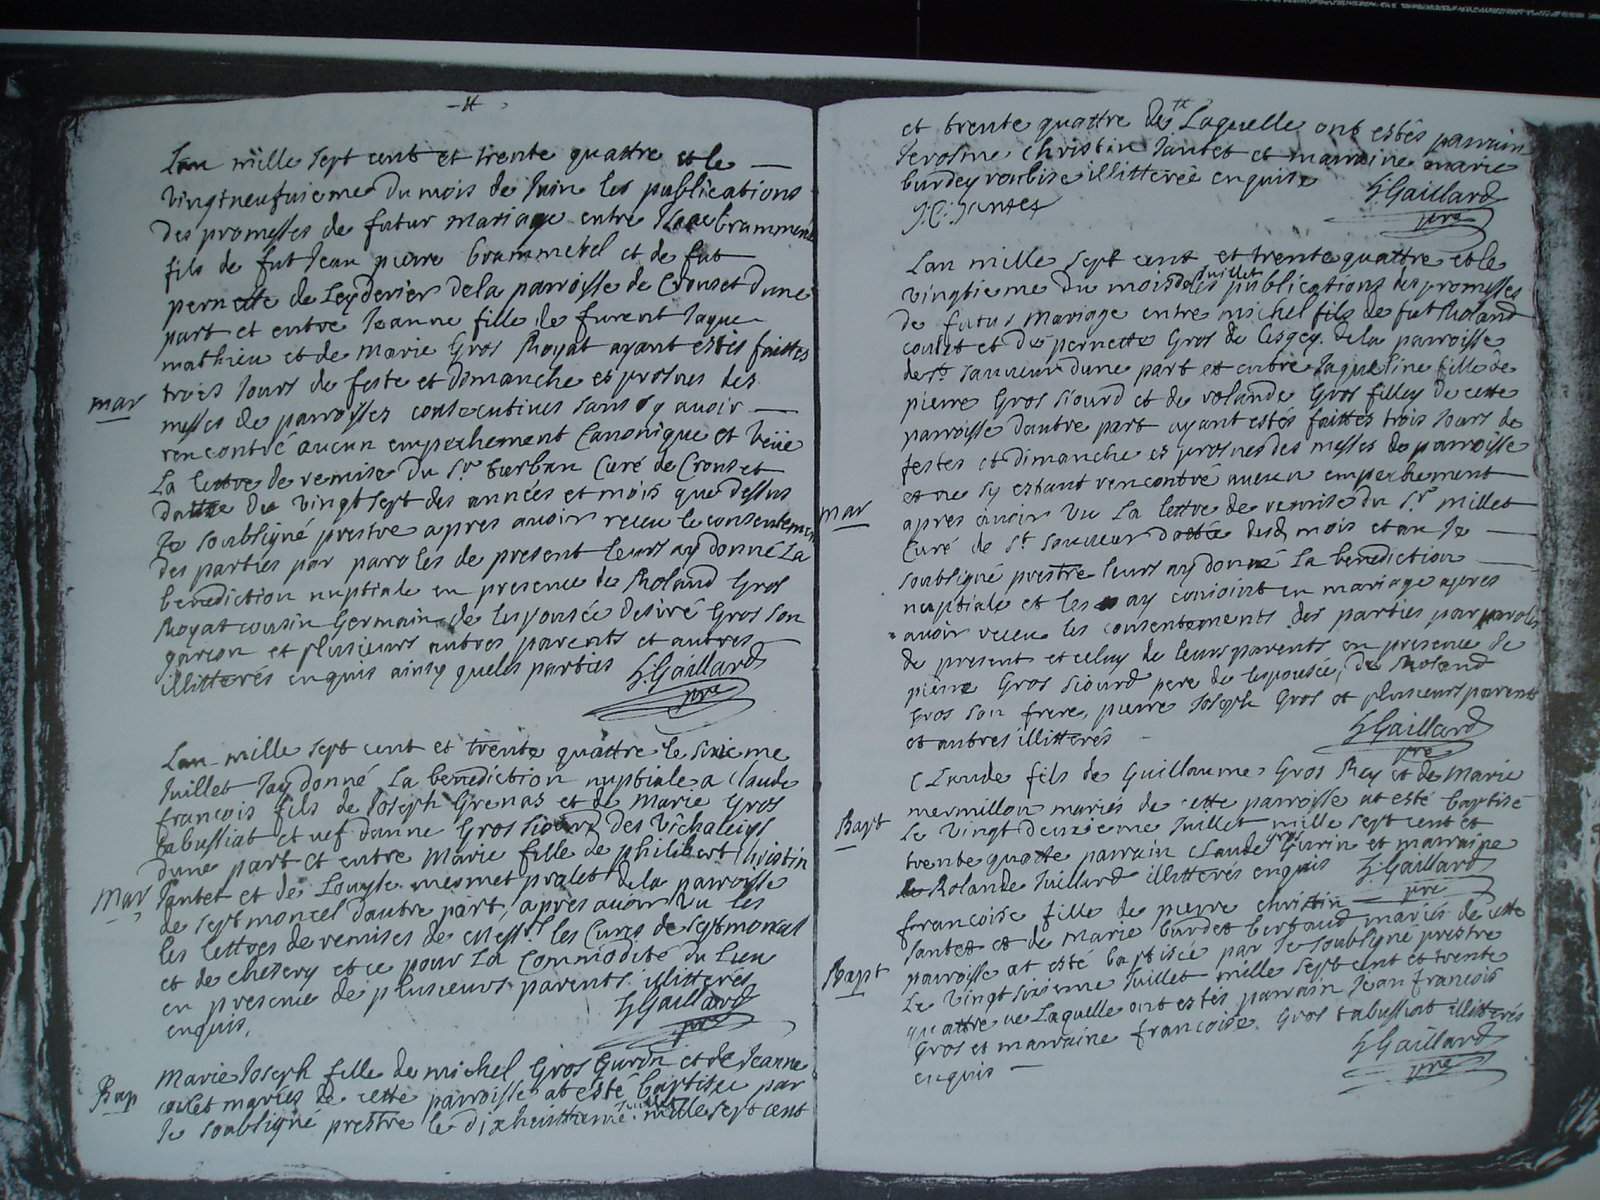 Lan mille sept cent et trente quattre et le
vingtneufuieme du mois de Juin les publications
des promesses de futur mariage entre
fils de fut Jean pierre brammerel et de fut
pernette de Leyderier dela parroisse de Crouset dune
part et entre Jeanne fille de furent Jaque
mathieu et de Marie Gros Royat ayant estés faittes
trois Jours de feste et dimanche es prosnes des
mar
messes de parroisses consecutives sans sy avoir
rencontré aucun empeschement Canonique et veüe
La lettre de remise du Sr Curé de Crouset
datte du vingt sept des années et mois que dessus
Je soubsigné prestre apres avoir receu le consentement
des parties par paroles de present leurs ay donné La
benediction nuptiale en presence de Roland Gros
Royat cousin Germain de lespousée desiré Gros son
garçon et plusieurs autres parents et autres
illitterés enquis ainsy que les parties G: Gaillard
pre
Lan mille sept cent et trente quattre le sixieme
Juillet Jay donné La benediction nuptiale a Claude
françois fils de Joseph Grenas et de Marie Gros
tabussiat et vef danne Gros Siourd des
dune part et entre Marie fille de philibert Christin
Mar
Jantet et de Louyse mermet pralet dela parroisse
de septmoncel dautre part, apres avoir vu les
les lettres de remises de Messrs les Curés de septmoncel
et de chesery et ce pour La Commodité du Lieu
en presence de plusieurs parents illitterés
enquis, G Gaillard
pre
Marie Joseph fille de michel Gros Gurin et de Jeanne
Bap
mariés de cette parroisse at esté baptisée par
Je soubsigné prestre le dixhuittieme Juillet mille sept cent
et trente quattre de Laquelle ont estés parrain
Jerosme Christin Jantet et marraine marie
burdey illitterée enquise G: Gaillard
J: C: Jantet pre
Lan mille sept cent et trente quattre et le
vingtieme du mois de Juillet les publications des promesses
de futur Mariage entre michel fils de fut Roland
coulet et de pernette Gros de dela parroisse
de St Sauveur dune part et entre Jaqueline fille de
pierre Gros Siourd et de rolande Gros filley de cette
parroisse dautre part ayant estés faittes trois Jours de
festes et dimanche es prosnes des messes de parroisse
et ne sy estant rencontré aucun empeschement
mar
apres avoir vu La lettre de remise du Sr millet
Curé de St Sauveur dattée desd mois et an Je
soubsigné prestre leurs ay donné La benediction
nuptiale et les ay conioint en mariage apres
avoir receu les consentements des parties par paroles
de present et celuy de leurs parents en presence de
pierre Gros Siourd pere de lespousée, de Roland
Gros son frere, pierre Joseph Gros et plusieurs parents
et autres illitterés G Gaillard
pre
Claude fils de Guillaume Gros Rey et de Marie
mermillon mariés de cette parroisse at esté baptisé
Bapt
Le vingt deuxieme Juillet mille sept cent et
trente quatte parrain Claude gros Gurin et marraine
Rolande Juillard illitterés enquis G: Gaillard
pre
francoise fille de pierre christin
Jantet et de Marie burdet bertoud mariés de cette
Bapt
parroisse at esté baptisée par Je soubsigné prestre
Le vingt sixieme Juillet mille sept cent et trente
quattre de Laquelle ont estés parrain Jean francois
Gros et marraine francoise Gros tabussiat illitterés
enquis G Gaillard
pre